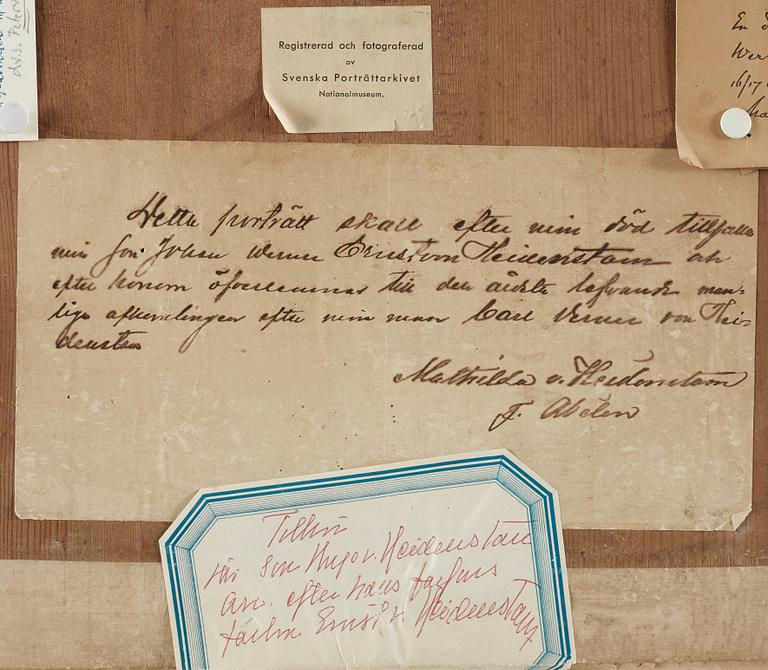 Registrerad och fotograferad
av
Svenska Porträttarkivet
Nationalmuseum.
En
Wer
16/17
Detta porträtt skall efter min död tillfalla
min son Johan Werner Ernst von Heidenstam och
efter honom öfverlemnas till den äldste lefvande man-
lige afkomlingen efter min man Carl Verner von Hei-
denstam
Mathilda v. Heidenstam
F. Abelen
Tillhör
vår son Hugo v. Heidenstam
arv. efter hans farfars
farbror Ernst v. Heidenstam